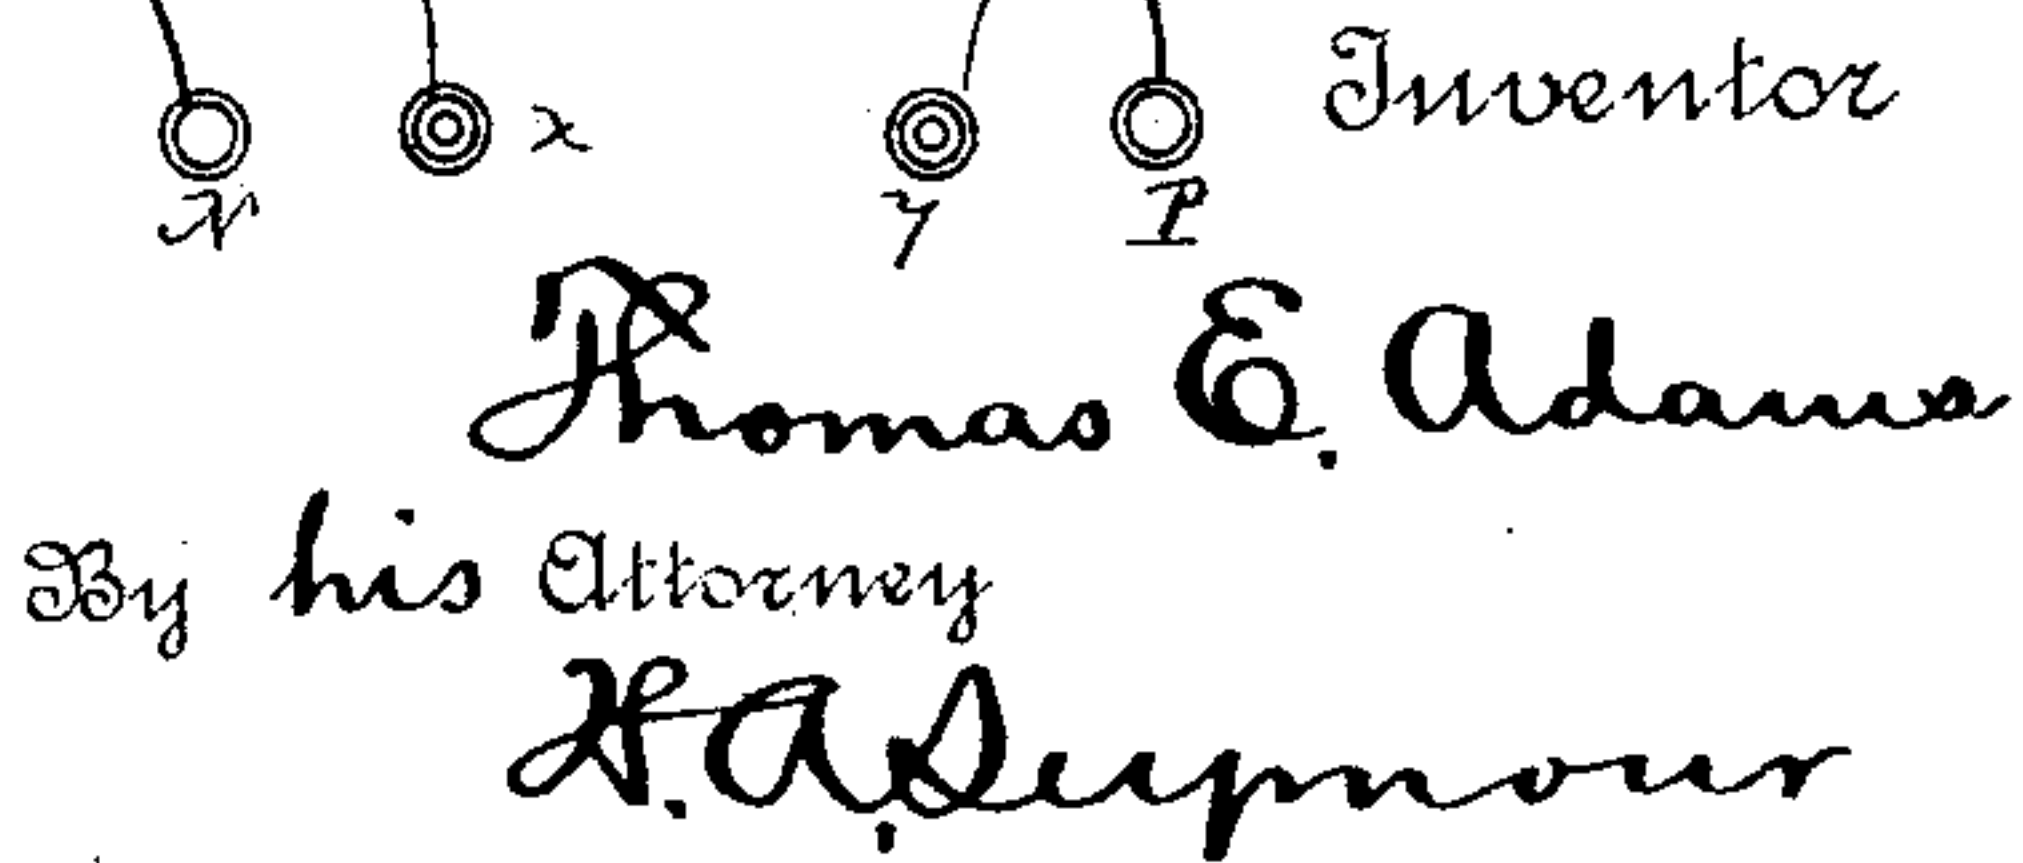 Inventor
N x y P
Thomas E. Adams
By his Attorney
H. A. Seymour